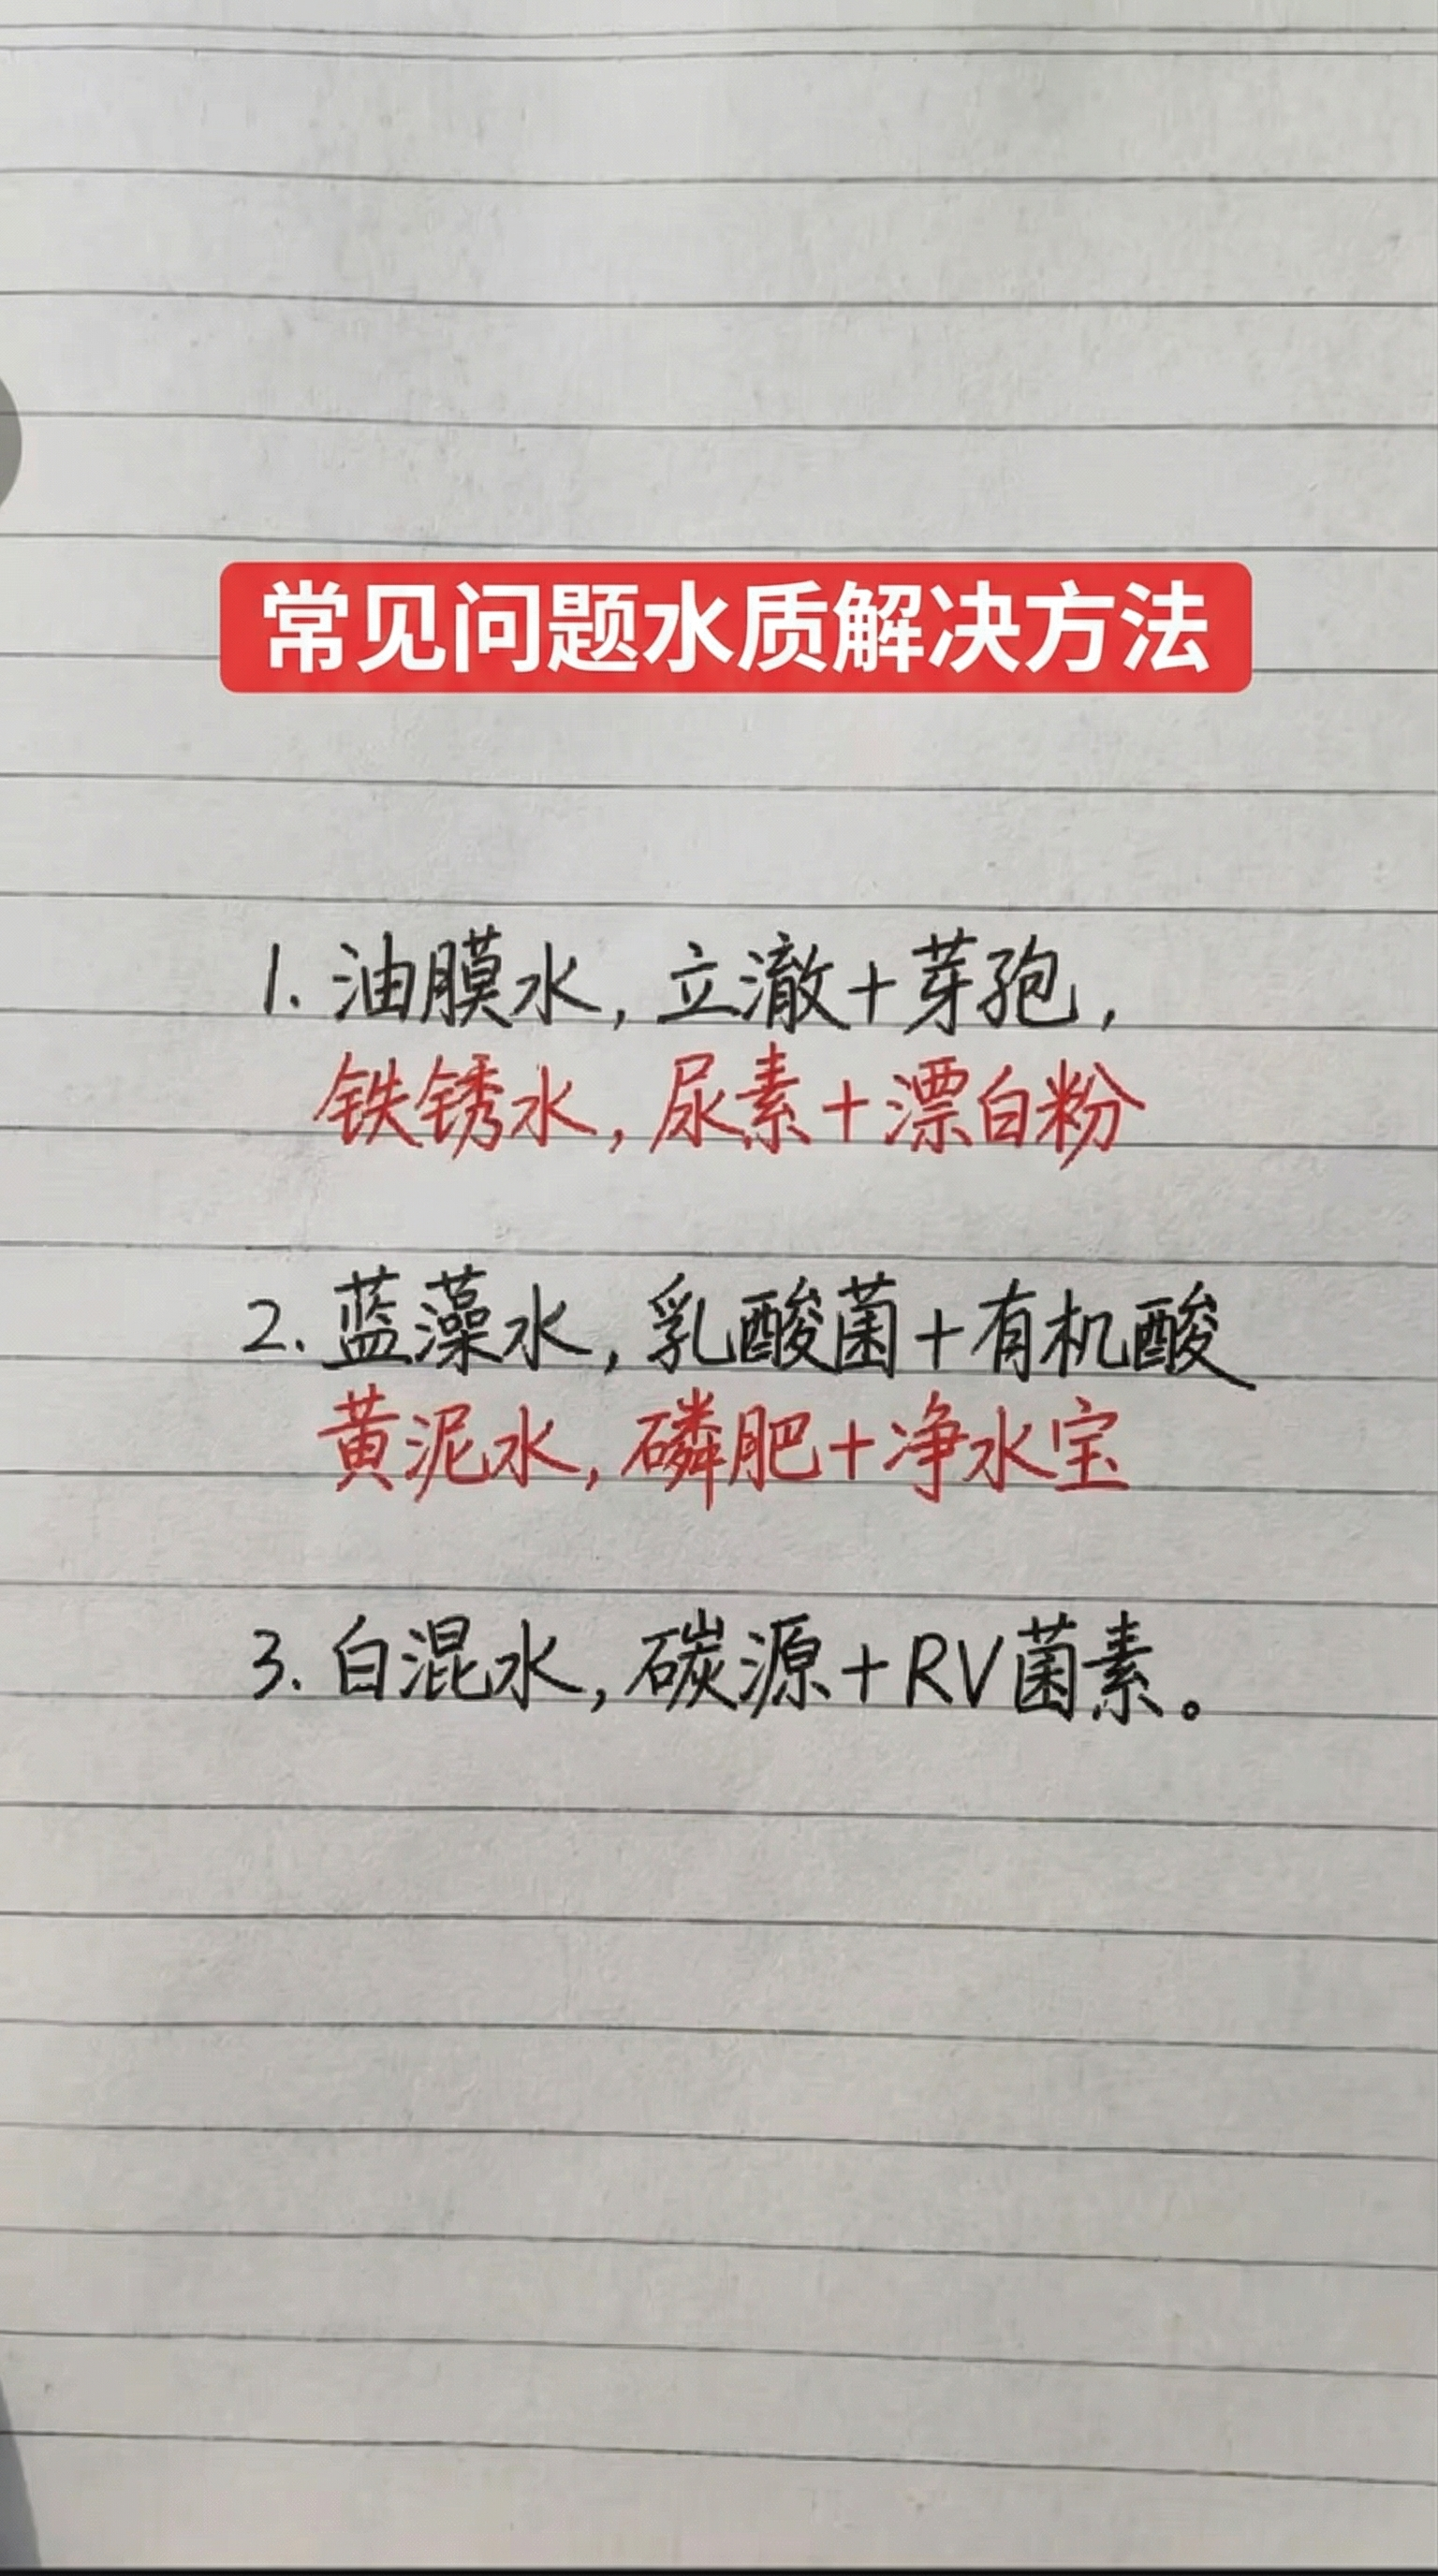 常见问题水质解决方法
1. 油膜水, 立澈+芽孢,
铁锈水, 尿素+漂白粉
2. 蓝藻水, 乳酸菌+有机酸
黄泥水, 磷肥+净水宝
3. 白混水, 碳源+RV菌素。